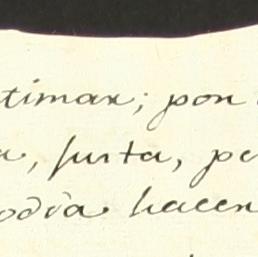 timar; por
a, justa, pe
odia hacer